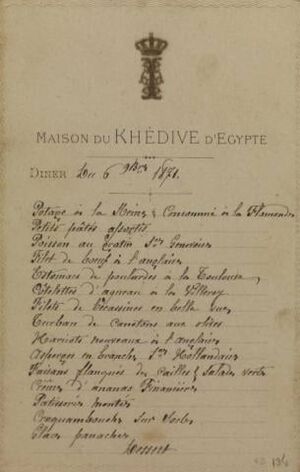 MAISON DU KHÉDIVE D'EGYPTE
DINER Du 6 9bre 1871.
Potage à la Reine, Consommé à la Flamande
Petits pâtés assortis
Poisson au gratin Sce Genevoise
Filet de bœuf à l'anglaise
Estomacs de poulardes à la Toulouse
Côtelettes d'agneau à la Villeroy
Filets de Bécassines en belle vue
Turban de canetons aux olives
Haricots nouveaux à l'anglaise
Asperges en branches Sce Hollandaise
Faisans flanqués de cailles, Salade verte
Crème d'ananas Financière
Patisserie montée
Croquembouche sur Socle
Glace panachée
Dessert
134